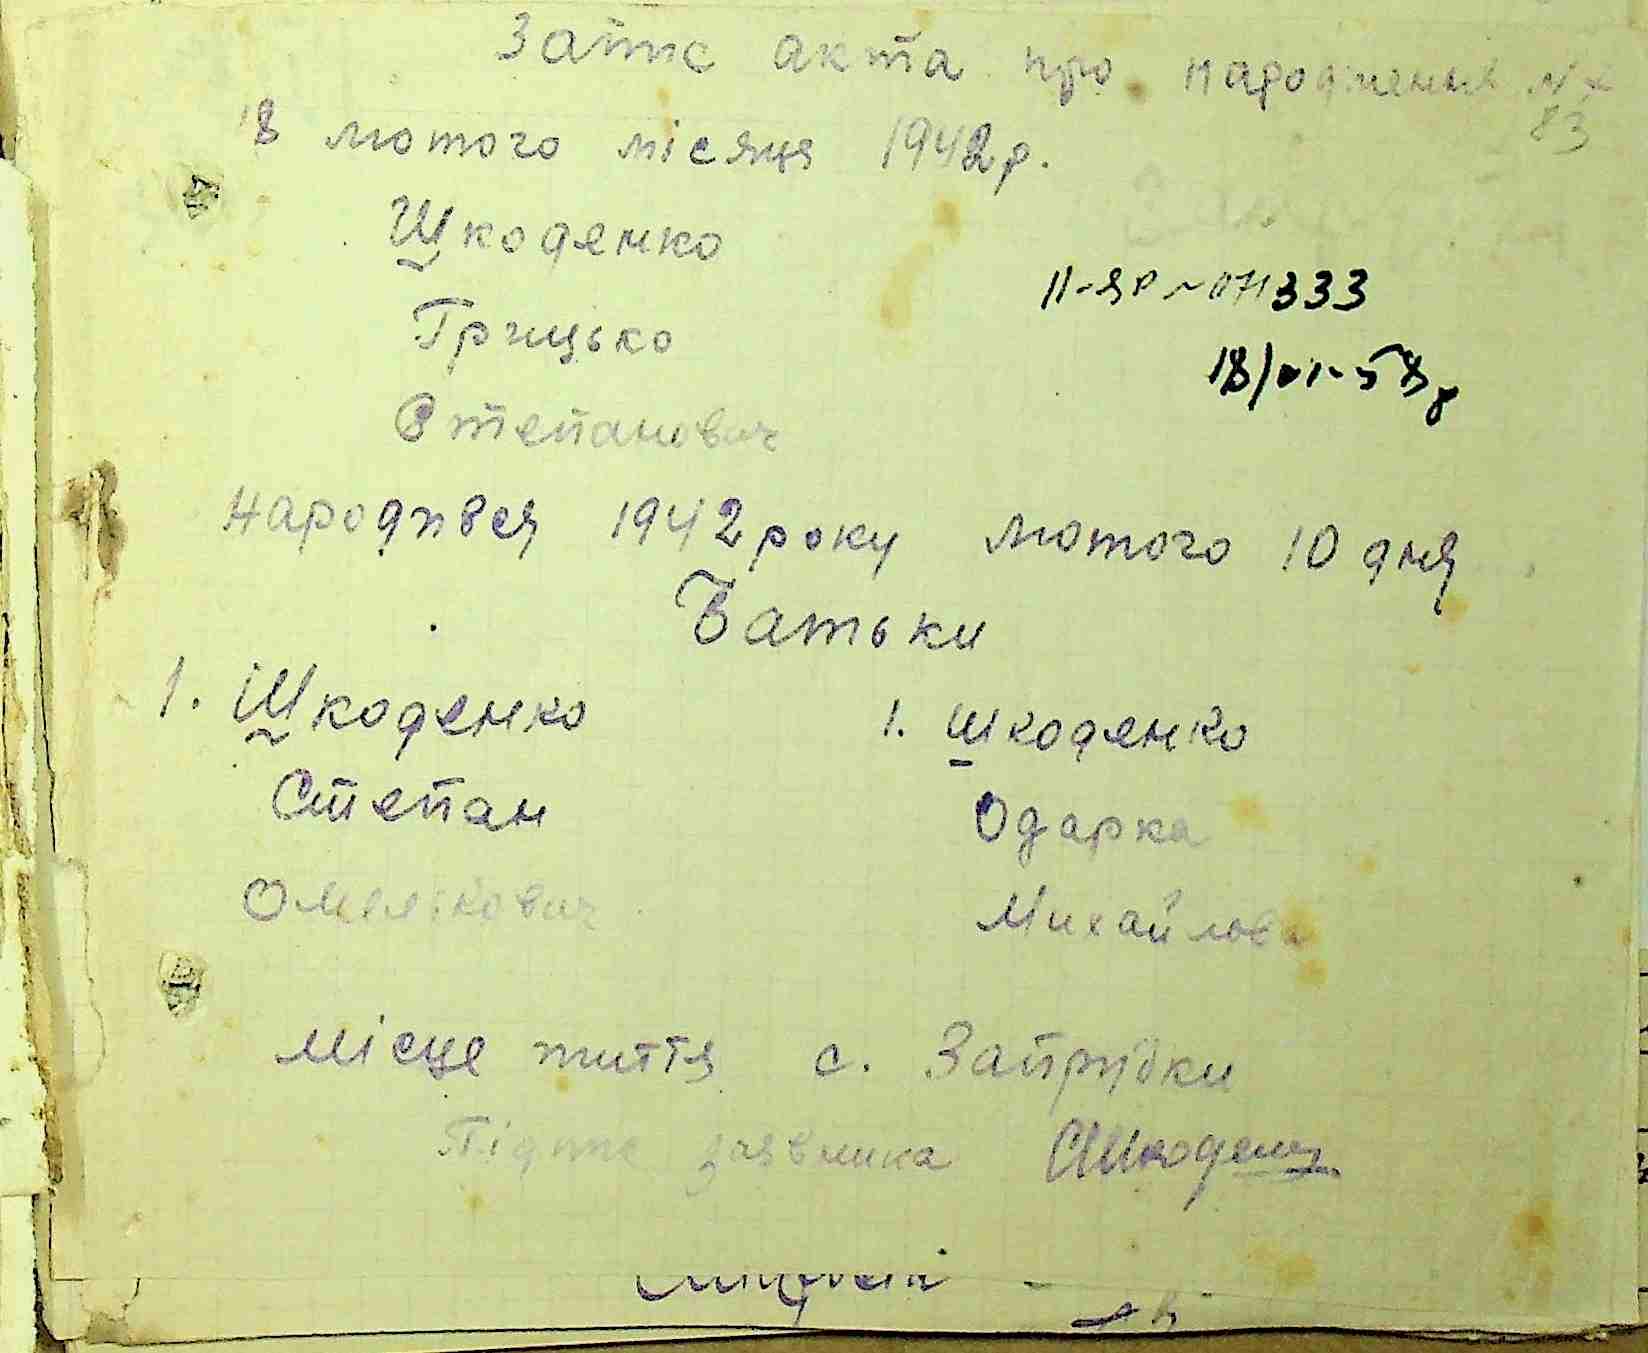 Запис акта про народження №
83
18 лютого місяця 1942 р.
Шкоденко
Грицько
Степанович
II-ЯР № 071333
18/VI-58 р
народився 1942 року лютого 10 дня
Батьки
1. Шкоденко
Степан
Омелькович
1. Шкоденко
Одарка
Михайловна
місце життя с. Запрудки
Підпис заявника СШкоден